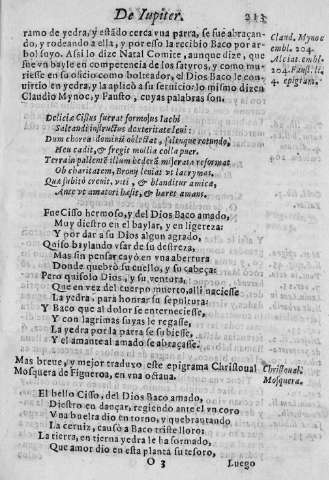 De Iupiter. 213
ramo de yedra, y estādo cerca vna parra, se fue abraçan-
do, y rodeando a ella, y por esso la recibio Baco por ar-
bol suyo. Assi lo dize Natal Comite, aunque dize, que
fue vn bayle en competencia de los satyros, y como mu-
riesse en su oficio como bolteador, el Dios Baco le con-
uirtio en yedra, y la aplicò a su seruicio: lo mismo dizen
Claudio Mynoe, y Fausto, cuyas palabras son.
Claud. Mynoe
embl. 204.
Alciat. embl.
204. Faust. li.
4. epigram.
Deliciæ Cissus fuerat formosus Iachi
Saltandi instructus dexteritate leni:
Dum chorea dominū oblectat, salensque rotundo,
Heu cadit, & fregit mollia colla puer.
Terra in pallentē illum hederā miserata reformat
Ob charitatem, Bromy leniat vt lacrymas.
Qua subito crenit, vtti, & blanditur amica,
Ante vt amatori hasit, & haret amans.
Fue Cisso hermoso, y del Dios Baco amado,
Muy diestro en el baylar, y en ligereza:
Y por dar a su Dios algun agrado,
Quiso baylando vsar de su destreza,
Mas sin pensar cayò en vna abertura
Donde quebrò su cuello, y su cabeça:
Pero quisolo Dios, y su ventura,
Que en vez del cuerpo muerto, alli naciesse
La yedra, para honrar su sepultura:
Y Baco que al dolor se enterneciesse,
Y con lagrimas suyas le regasse,
La yedra por la parra se subiesse,
Y el amante al amado se abraçasse.
Mas breue, y mejor traduxo este epigrama Christoual
Mosquera de Figueroa, en vna octaua.
Christoual.
Mosquera.
El bello Cisso, del Dios Baco amado,
Diestro en dançar, regiendo ante el vn coro
Vna buelta dio en torno, y quebrantando
La ceruiz, causò a Baco triste lloro:
La tierra, en tierna yedra le ha formado,
Que amor dio en esta planta su tesoro,
O 3 Luego